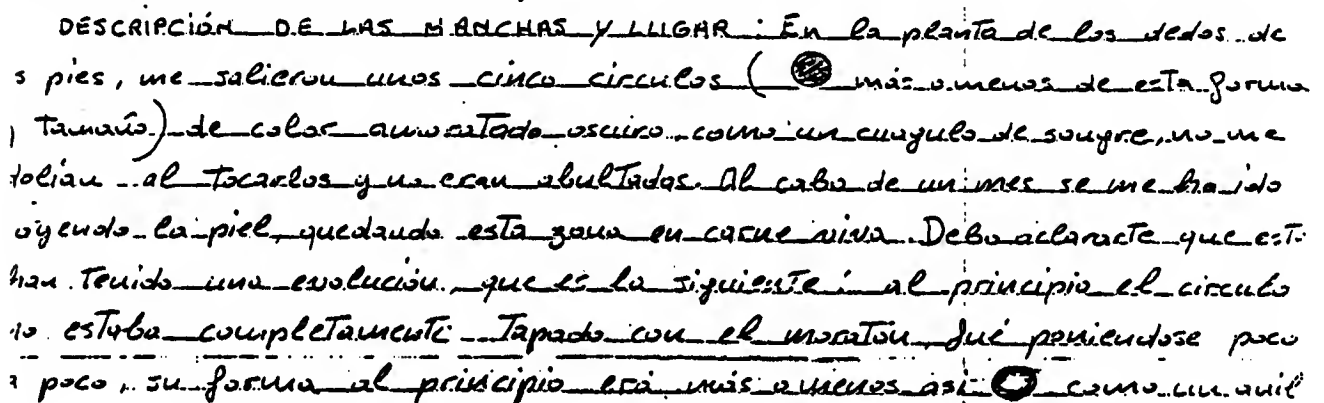 DESCRIPCIÓN DE LAS MANCHAS Y LLUGAR : En la planta de los dedos de
s pies, me salieron unos cinco circulos ( más o menos de esta forma
y tamaño) de color amoratado oscuro como un cuagulo de sangre, no me
dolían al tocarlos y no eran abultados. Al cabo de un mes se me ha ido
oyendo la piel, quedando esta zona en carne viva. Debo aclararte que est
han tenido una evolución, que es la siguiente : al principio el circulo
no estaba completamente tapado con el moratón, fué poniendose poco
a poco, su forma al principio erá más o menos así como un anil